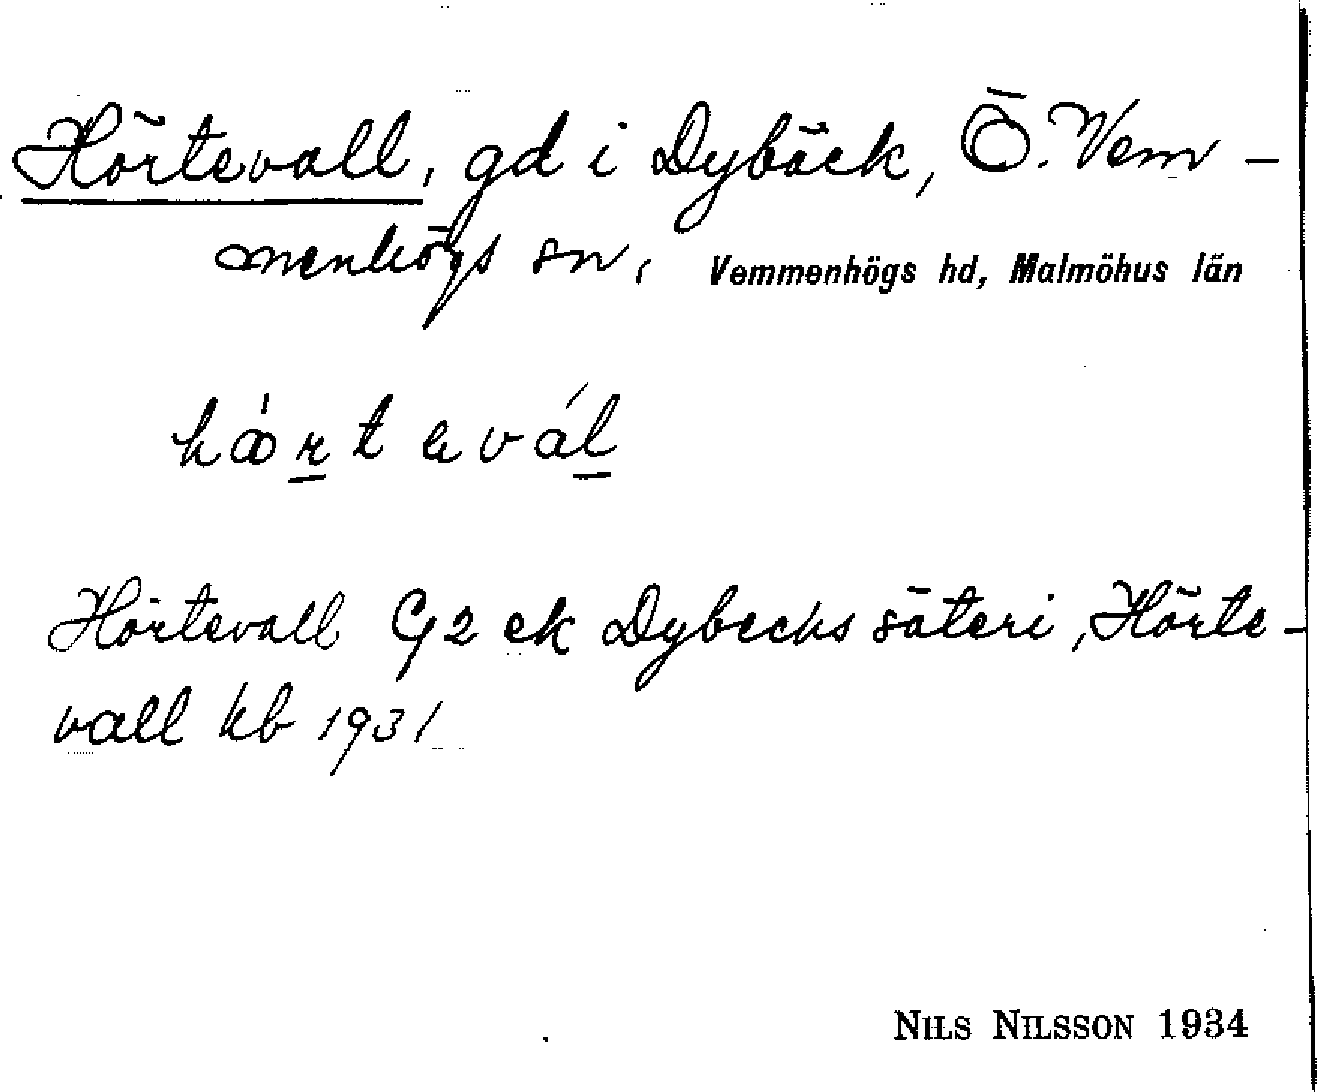 Hörtevall, gd i Dybäck, Ö. Vem-
menhögs sn, Vemmenhögs hd, Malmöhus län
Hörtevall G2 ek Dybecks säteri, Hörte-
vall kb 1931
NILS NILSSON 1934